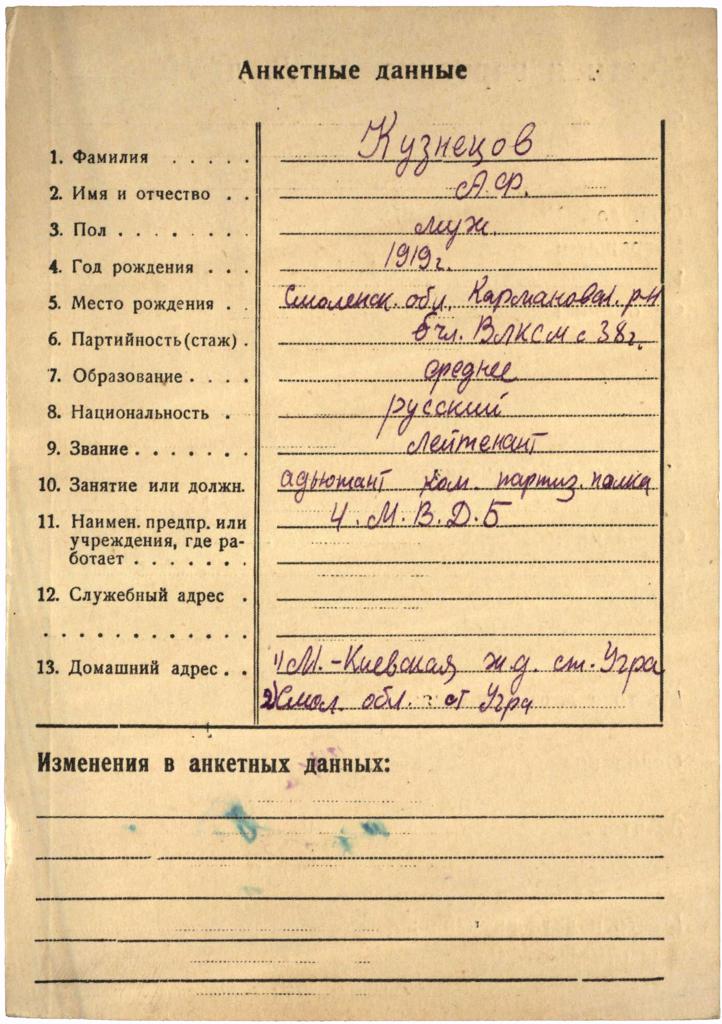 Анкетные данные
1. Фамилия . . . . . Кузнецов
2. Имя и отчество . . А.Ф.
3. Пол . . . . . . . муж.
4. Год рождения . . . 1919 г.
5. Место рождения . . Смоленск. обл. Кармановск. р-н
6. Партийность (стаж) . б чл. ВЛКСМ с 38 г.
7. Образование . . . . среднее
8. Национальность . русский
9. Звание . . . . . . . лейтенант
10. Занятие или должн. адьютант ком. партиз. полка
11. Наимен. предпр. или 4. М. В. Д. Б
учреждения, где ра-
ботает . . . . . . .
12. Служебный адрес .
. . . . . . . . . . . .
13. Домашний адрес . . 1) М.-Киевская ж.д. ст. Угра
2) Смол. обл. ст Угра
Изменения в анкетных данных: